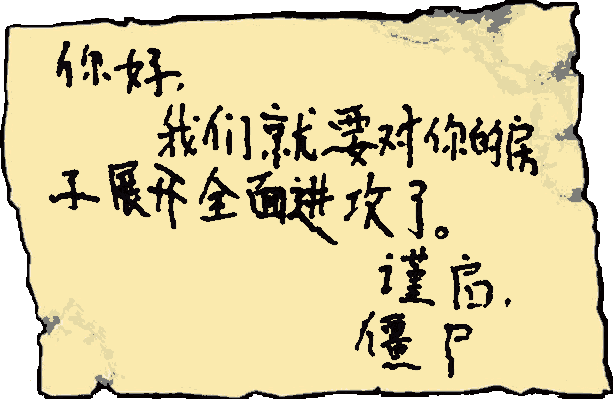 你好，
我们就要对你的房
子展开全面进攻了。
谨启，
僵尸